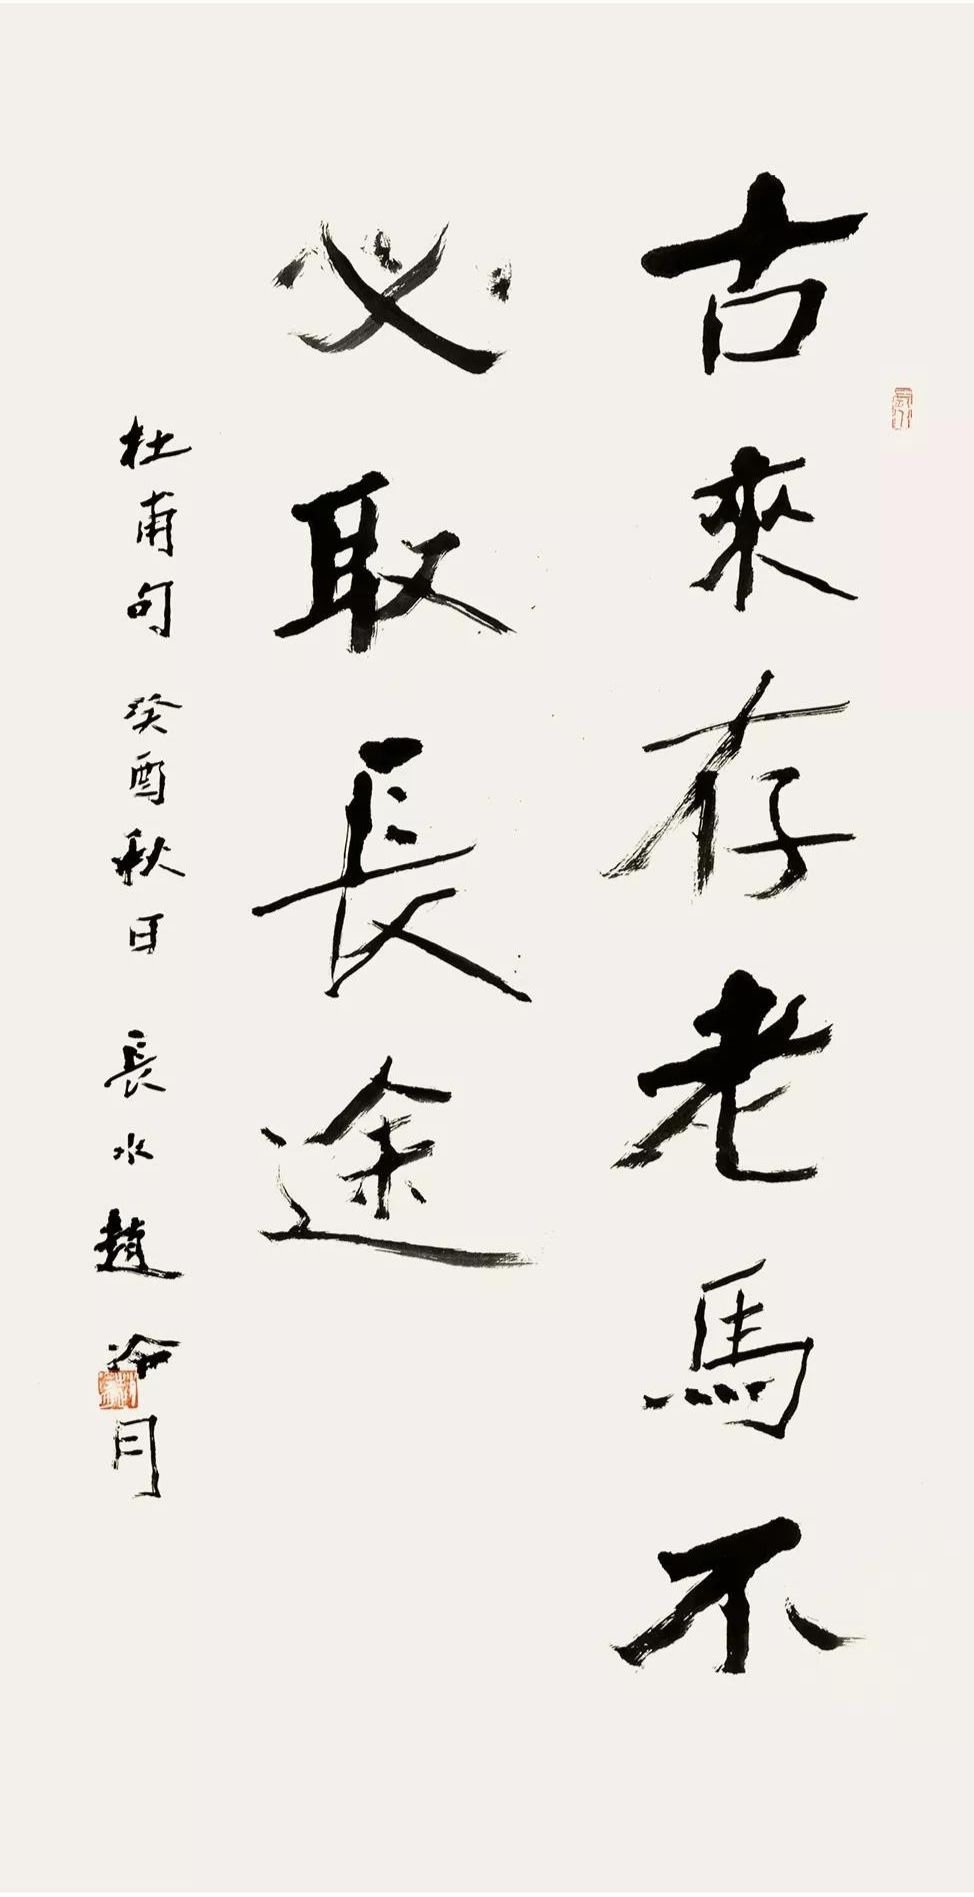 古來存老馬不
必取長途
杜甫句 癸酉秋日 長水趙冷月